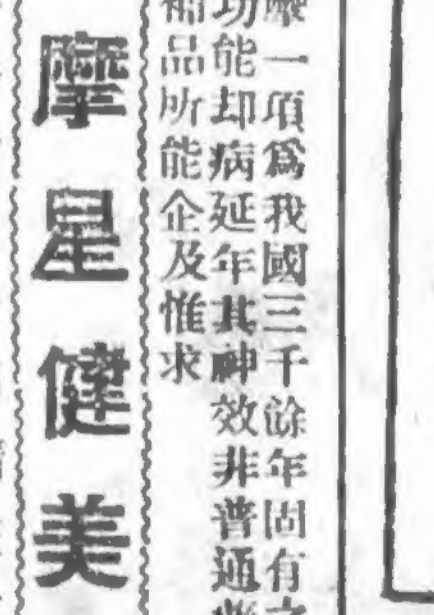 摩一項爲我國三千餘年固有之
功能却病延年其神效非普通
補品所能企及惟求
摩星健美